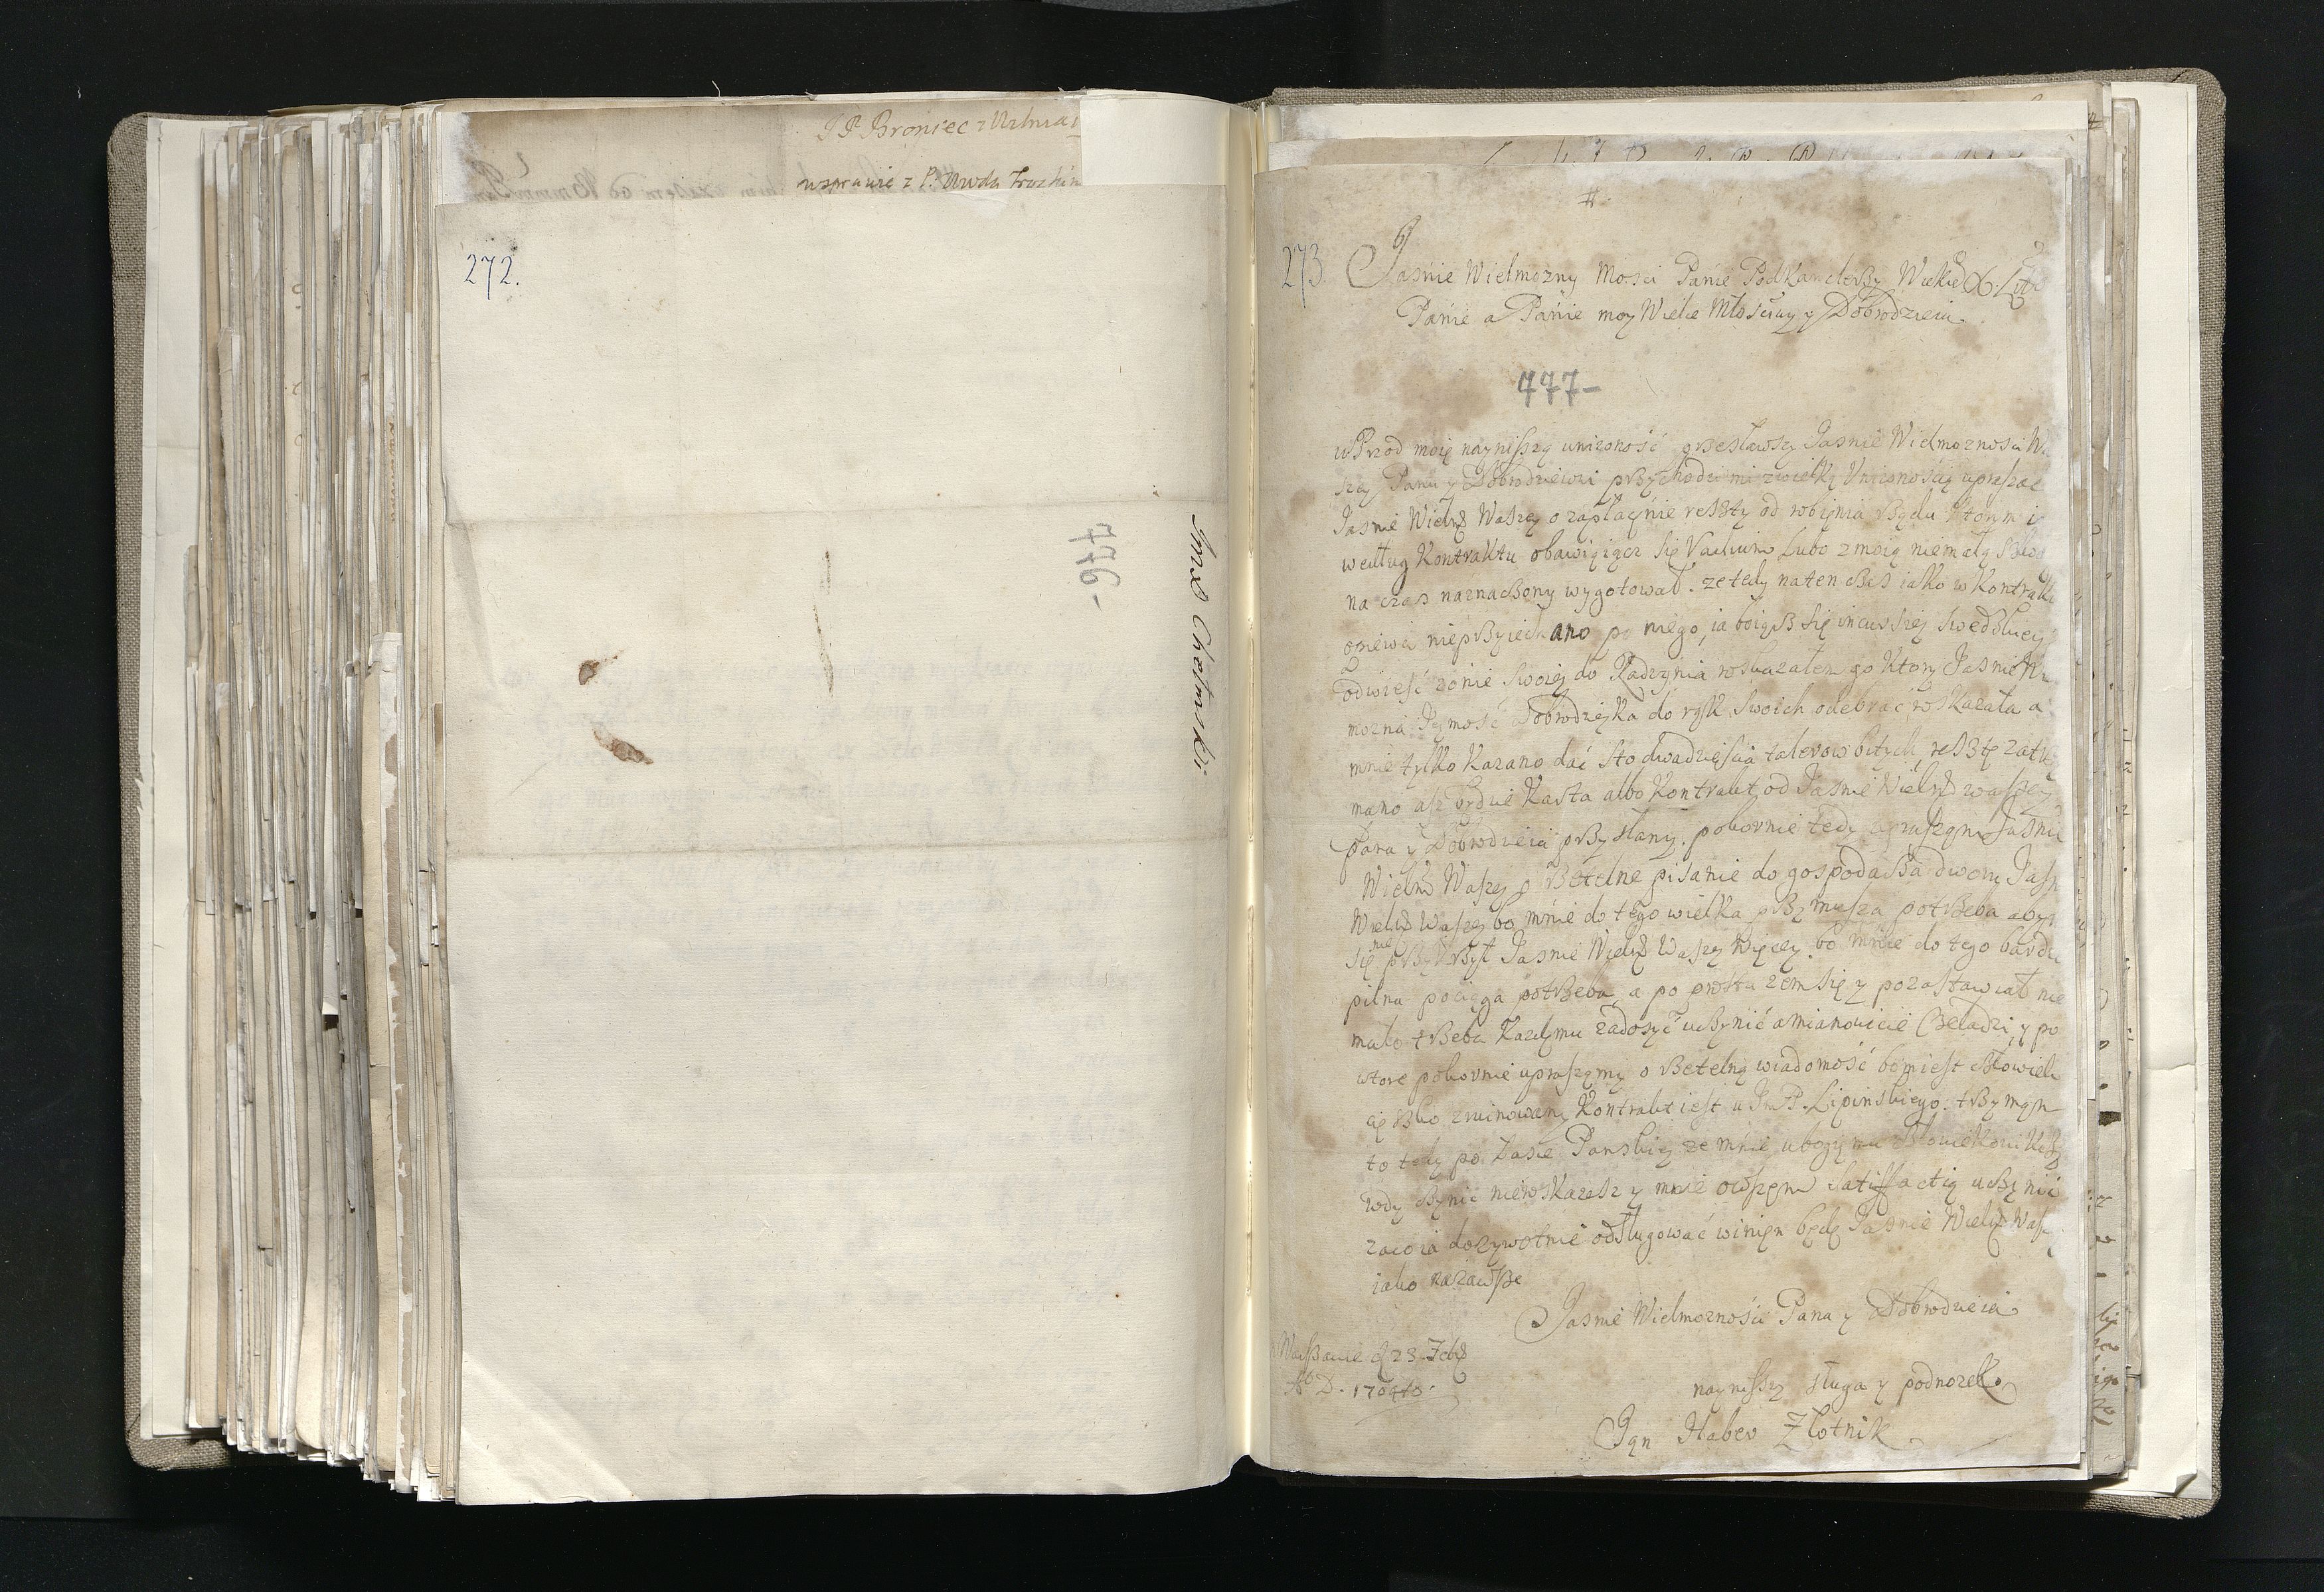 JP Broniec z Wilna
w sprawie z P. Wwdą Trockim
272.
776-
Jmrx Chełmski
#
273.
Jasnie Wielmozny Mosci Panie Podkanclerzy Wielkie X. Litt
Panie a Panie moy Wielce Młosciwy y Dobrodzieiu
777-
wPrzod moię nayniszszą unizoność przesławszy Jasnie Wielmoznosci Wa
szey Panu y Dobrodziewi przychodzi mi zwielką Unizonoscią upraszac
Jasnie Wielm Waszey o zapłacęnie reszty od robięnia Rzędu ktorym i
według Kontraktu obawiąiącz się Vadium Lubo z moią niemałą szkod
na czas naznaczony wygotował. ze tedy na ten czas iako w Kontrakc
opiewa nieprzyiechano po niego, ia boiącz się incursiey Swedzkiey
odwieść zonie Swoiey do Radzynia roskazałem go Ktory Jasnie W
mozna Jeymość Dobrodzieyka do rąk Swoich odebrać roskazała a
mnie tylko Kazano dać sto dwadzieścia talerow bitych, resztę zatrzy
mano asz będzie Karta albo Kontrakt od Jasnie Wielm waszey
Pana y Dobrodzieia przysłany. pokornie tedy upraszam Jasnie
Wielm Waszey o Rzetelne pisanie do gospodarza dworu Jasn
Wielm Waszey bo mnie do tego wielka przymusza potrzeba abym
się nie przykrzył Jasnie Wielm Waszey więcey. bo mnie do tego bardzo
pilna pociąga potrzeba, a po prostu zem się y pozastawiał nie
mało trzeba Kazdemu zadosyć uczynić a mianowicie Czeladzi, y po
wtore pokornie upraszamy o Rzetelną wiadomość bom iest człowiek
cięszko zruinowany Kontrakt iest u JmP. Lipinskiego. trzymam
to tedy po Łasce Panskiey ze mnie ubogiemu człowiekowi Krzy
wdy czynić nieroskazesz y mnie owszem Satisfactią uczynić
zaco ia dozywotnie odsługować winięn będę Jasnie Wielm Wasz
iako nazawsze
Jasnie Wielmozności Pana y Dobrodzieia
Warszawie d 23 7bris
Ao D. 1704to.
naynizszy sługa y podnozek
Jan Haber Złotnik